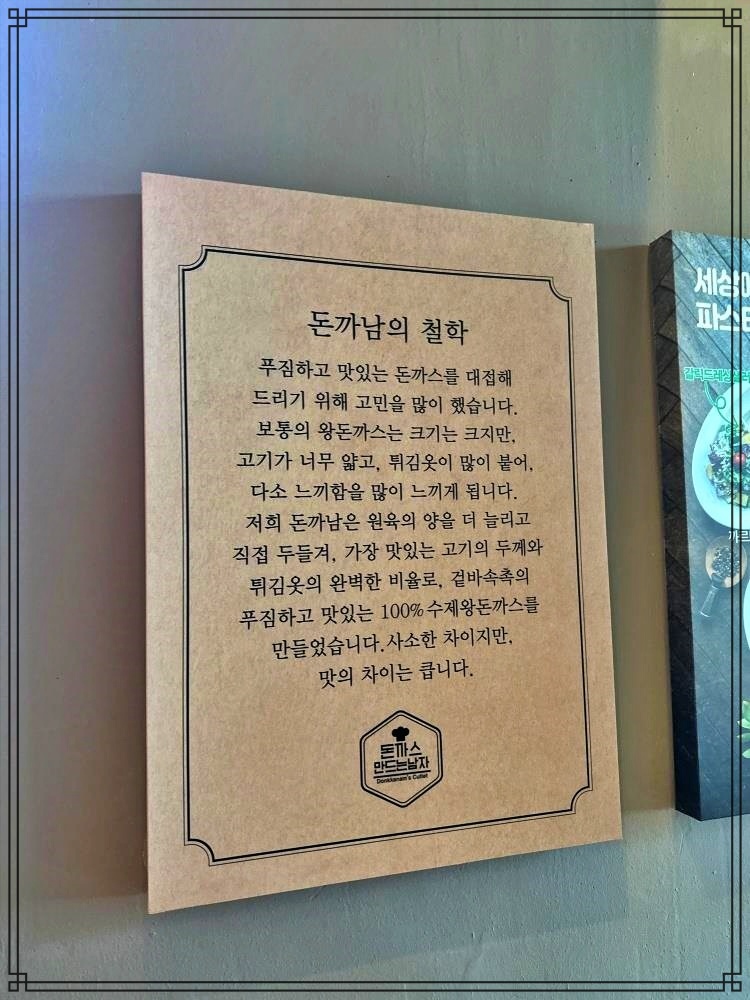 돈까남의 철학
푸짐하고 맛있는 돈까스를 대접해
드리기 위해 고민을 많이 했습니다.
보통의 왕돈까스는 크기는 크지만,
고기가 너무 얇고, 튀김옷이 많이 붙어,
다소 느끼함을 많이 느끼게 됩니다.
저희 돈까남은 원육의 양을 더 늘리고
직접 두들겨, 가장 맛있는 고기의 두께와
튀김옷의 완벽한 비율로, 겉바속촉의
푸짐하고 맛있는 100% 수제왕돈까스를
만들었습니다.사소한 차이지만,
맛의 차이는 큽니다.
돈까스
만드는남자
Donkkanam's Cutlet